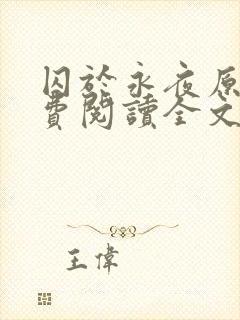 囚於永夜原
費閱讀全文
王偉